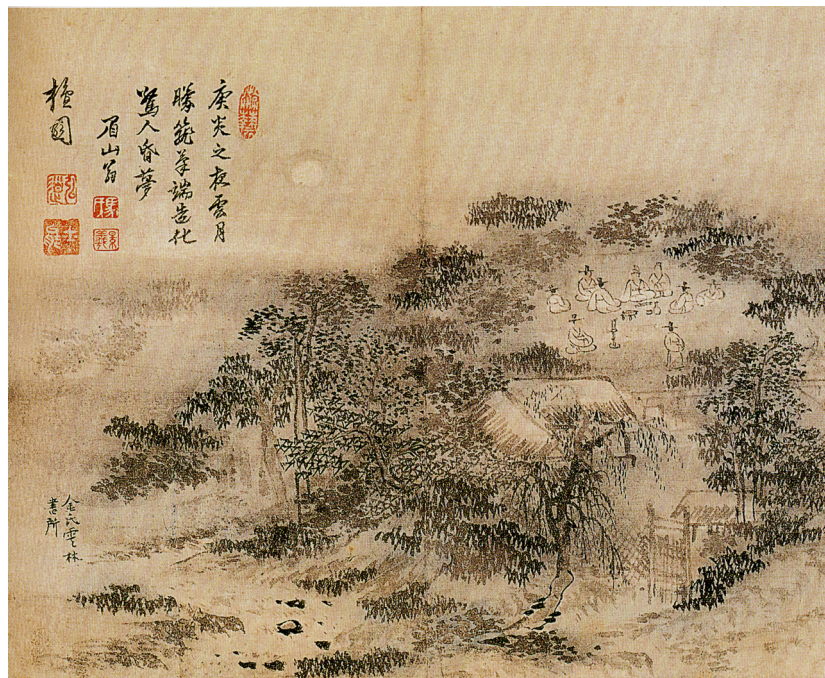 庚炎之夜雲月
朦朧筆端造化
驚人昏夢
眉山翁
檀園
金氏雲林
書所